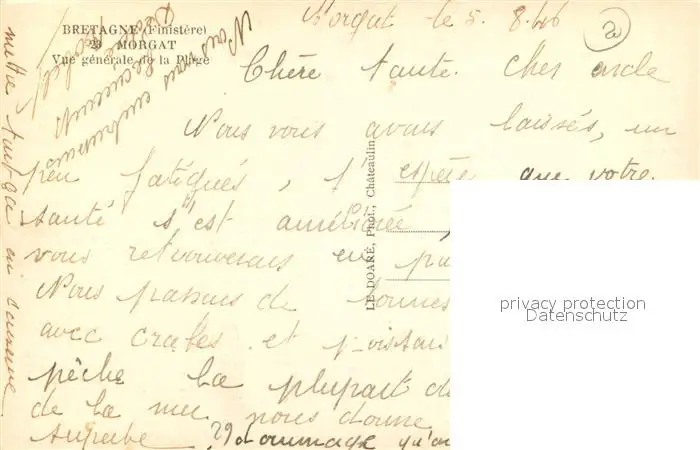 BRETAGNE (Finistère)
29 MORGAT
Vue générale de la Plage
Morgat le 5. 8. 46
Chère tante. cher oncle
Nous vous avons laissés, un
peu fatigués, j'espère que votre
santé s'est améliorée,
vous retrouverons en
Nous passons de bonnes
avec crabes et poissons
pêche la plupart de
de la mer nous donne
superbe dommage qu'on
LE DOARÉ, Phot., Châteaulin
mettre tout ça en conserve
Nous vous embrassons
privacy protection
Datenschutz